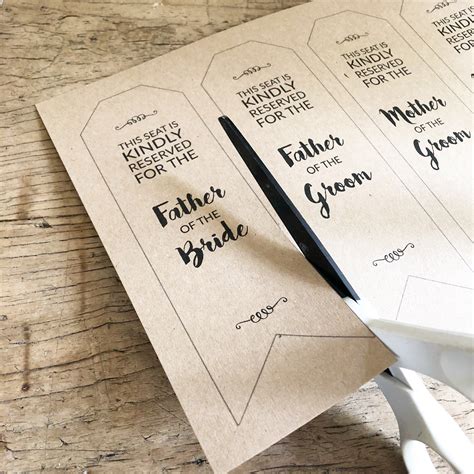 THIS SEAT IS
KINDLY
RESERVED
FOR THE
Father
OF THE
Bride
THIS SEAT IS
KINDLY
RESERVED
FOR THE
Father
OF THE
Groom
THIS SEAT IS
KINDLY
RESERVED
FOR THE
Mother
OF THE
Groom